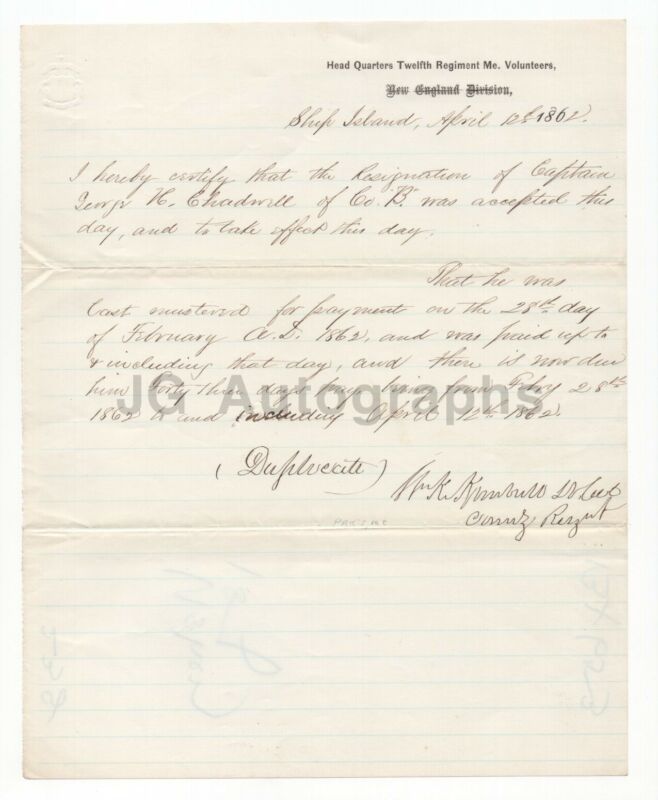 Head Quarters Twelfth Regiment Me. Volunteers,
New England Division,
Ship Island, April 12th 1862.
I hereby certify that the Resignation of Captain
George H. Chadwell of Co. B was accepted this
day, and to take effect this day.
That he was
last mustered for payment on the 28th day
of February A.D. 1862, and was paid up to
& including that day, and there is now due
him Forty three days pay being from Feby 28th
1862 to and including April 12th 1862.
(Duplicate)
Wm K. Kimball Lt Col
Comdg Regmt
JG Autographs